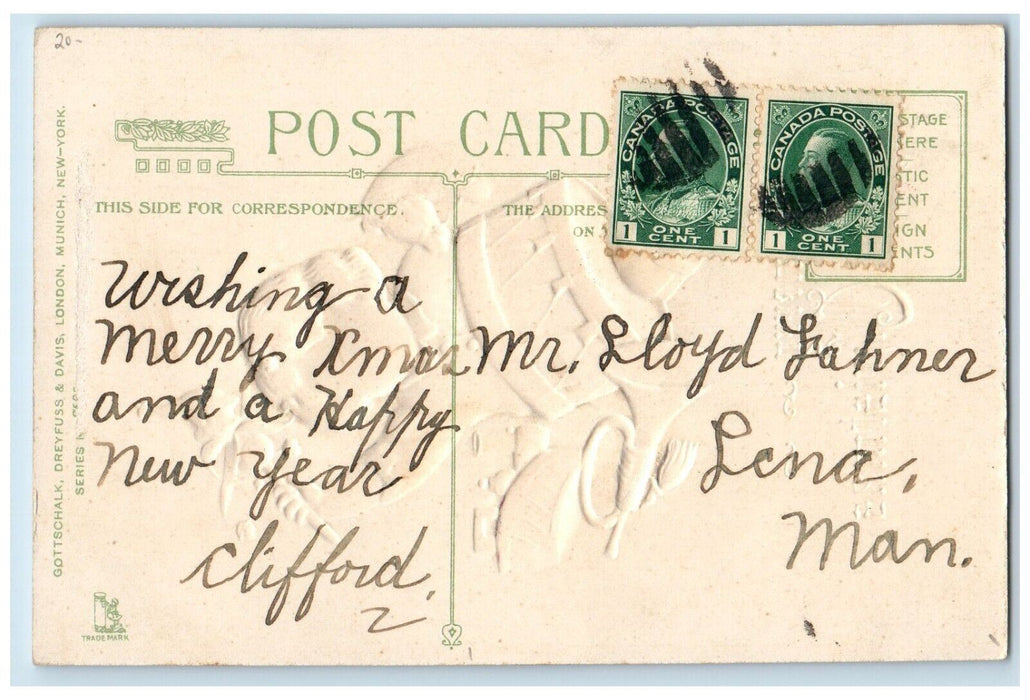 20-
POST CARD
THIS SIDE FOR CORRESPONDENCE.
THE ADDRES
ON
STAGE
ERE
TIC
ENT
IGN
ENTS
CANADA POSTAGE
1 ONE CENT 1
CANADA POSTAGE
1 ONE CENT 1
Wishing a
Merry Xmas
and a Happy
New Year
Clifford.
Mr. Lloyd Fahner
Lena,
Man.
GOTTSCHALK, DREYFUSS & DAVIS, LONDON, MUNICH, NEW-YORK.
SERIES
TRADE MARK